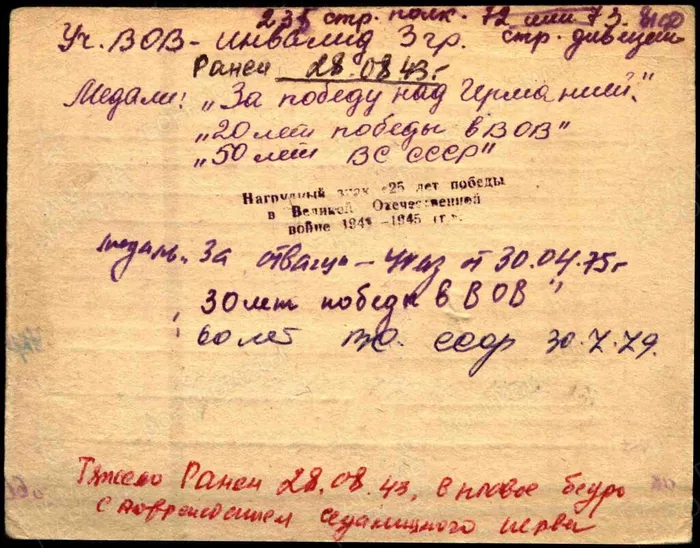 235 стр. полк. 72 или 73.
Уч. ВОВ - инвалид 3 гр. стр. дивизии
Ранен 28.08.43 г.
Медали: „За победу над Германией."
„20 лет победы в ВОВ"
„50 лет ВС СССР"
Нагрудный знак «25 лет победы
в Великой Отечественной
войне 1941-1945 гг.».
медаль „За отвагу - Указ от 30.04.75 г
„30 лет победы в ВОВ"
„60 лет СССР 30.7.79.
Тяжело Ранен 28.08.43, в правое бедро
с повреждением седалищного нерва